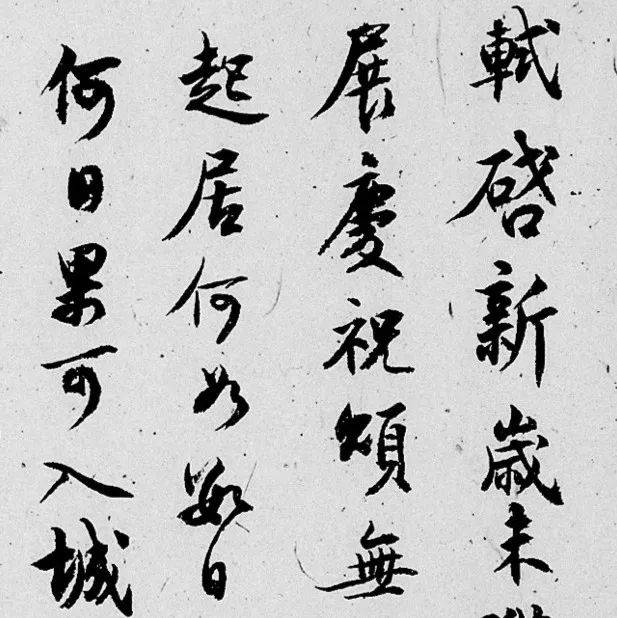 軾啓新歲未
展慶祝頌無
起居何如數日
何日果可入城